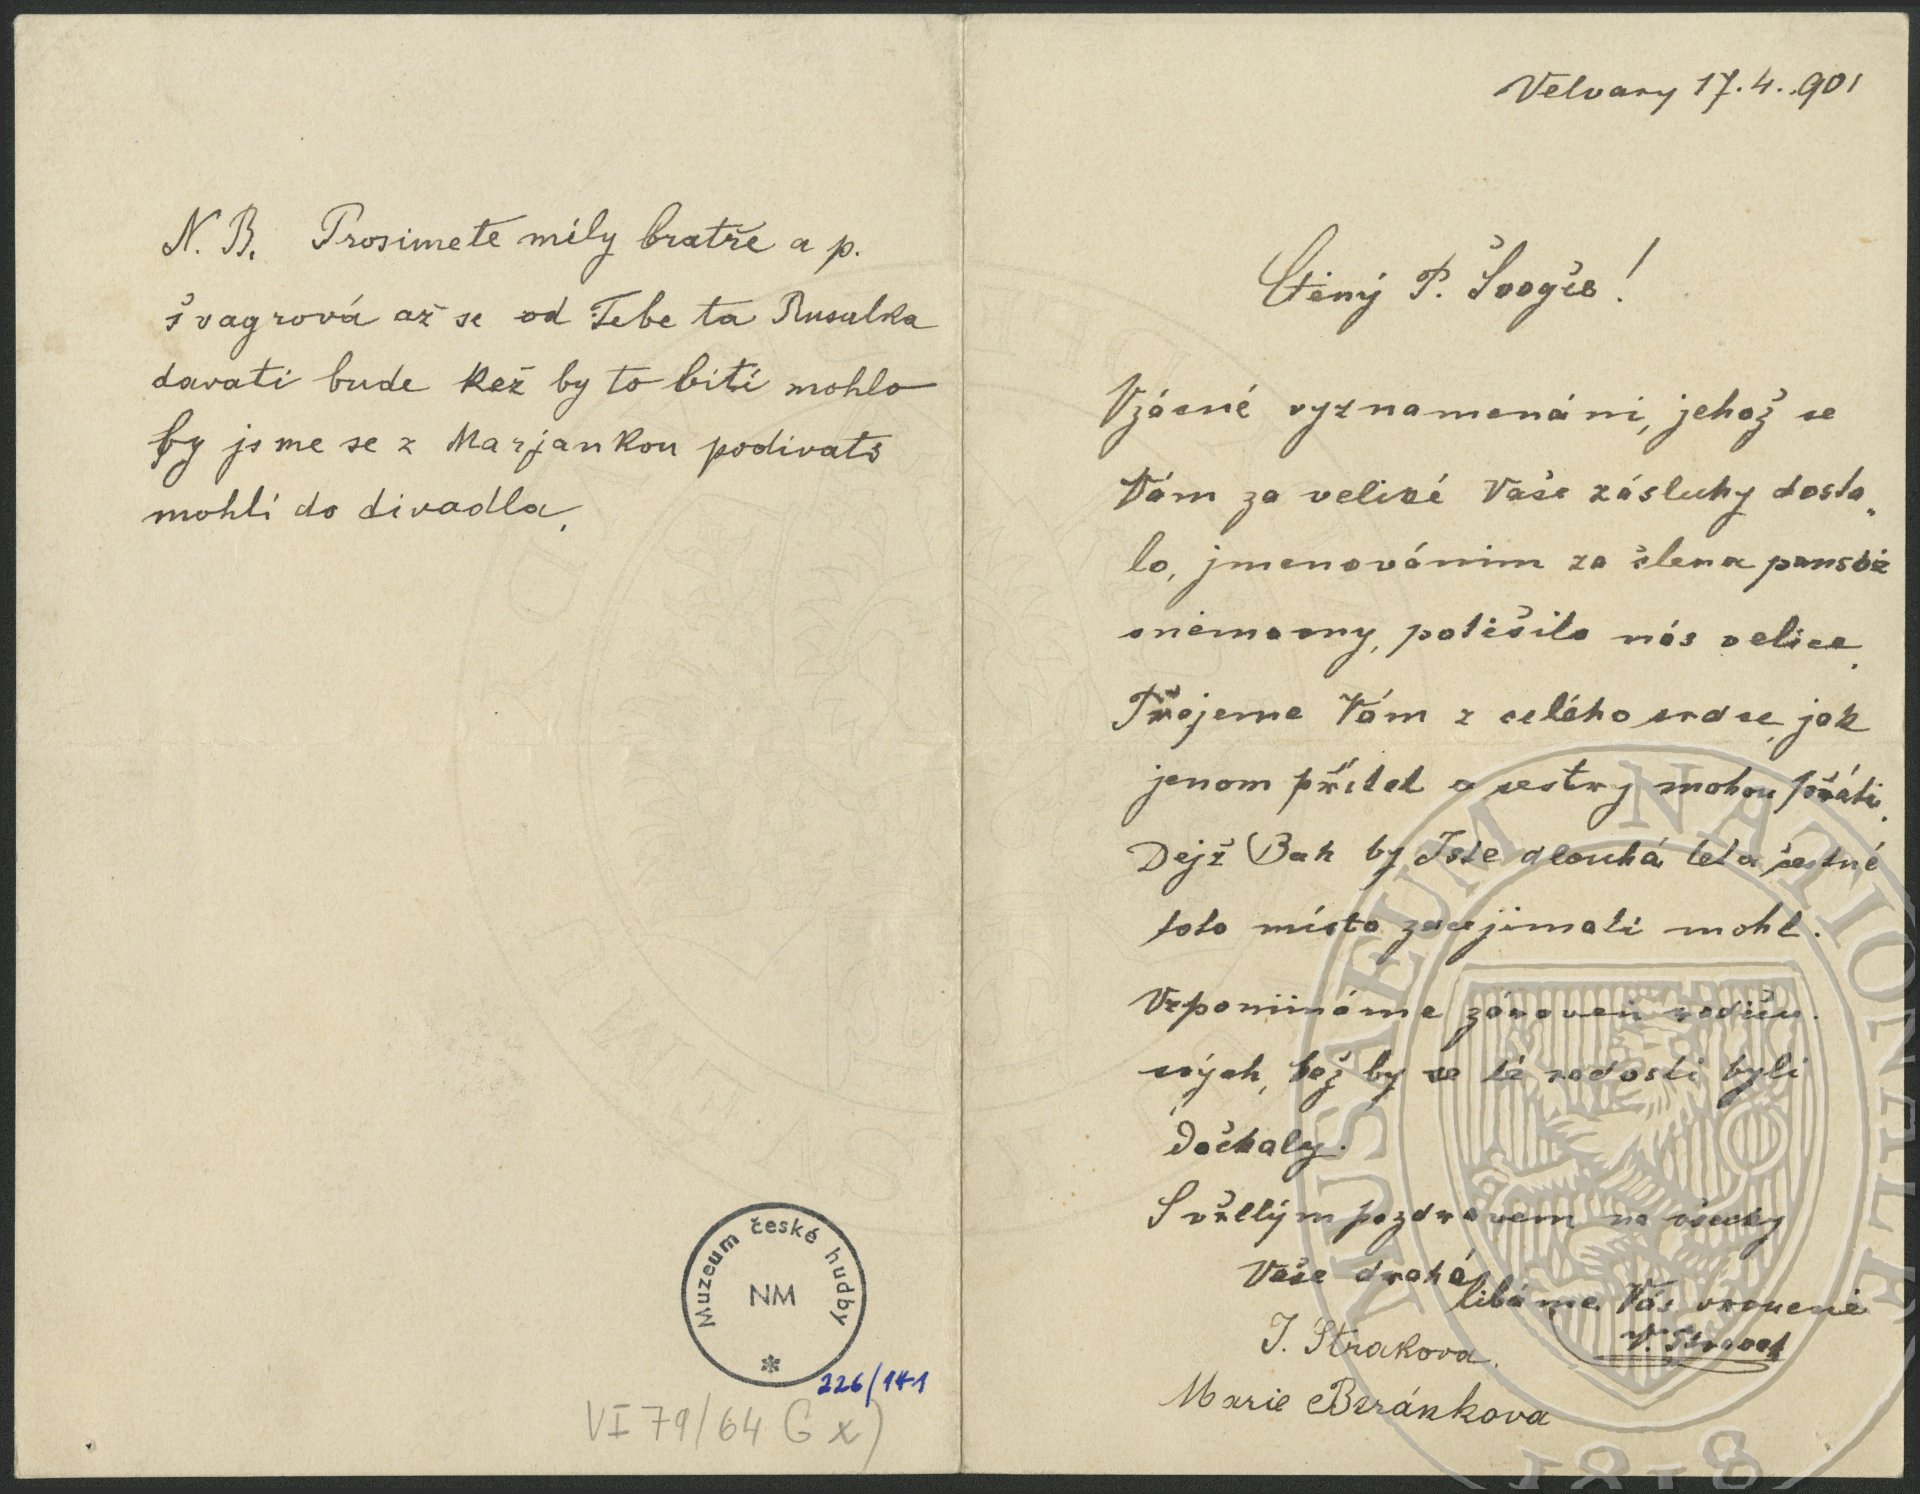 N. B. Prosimete mily bratře a p.
švagrová až se od Tebe ta Rusalka
davati bude kež by to biti mohlo
by jsme se z Marjankou podivati
mohli do divadla.
Muzeum české hudby
NM
226/141
VI 79/64 G x)
Velvary 17. 4. 901
Ctěný P. Švogře!
Vzácné vyznamenáni, jehož se
Vám za veliké Vaše zásluhy dosta„
lo, jmenovánim za člena panské
sněmovny, potěšilo nás velice.
Přejeme Vám z celého srdce, jak
jenom přítel a sestry mohou přáti.
Dejž Bůh by Jste dlouhá léta čestné
toto místo zaujimati mohl.
Vzpomináme zároveň rodičů
svých, kež by se té radosti byli
dočkaly.
S vřelým pozdravem na všecky
Vaše drahé
libáme Vás vroucně
J. Strakova.
Marie Beránkova
MUSAEUM NATIONALE
1818